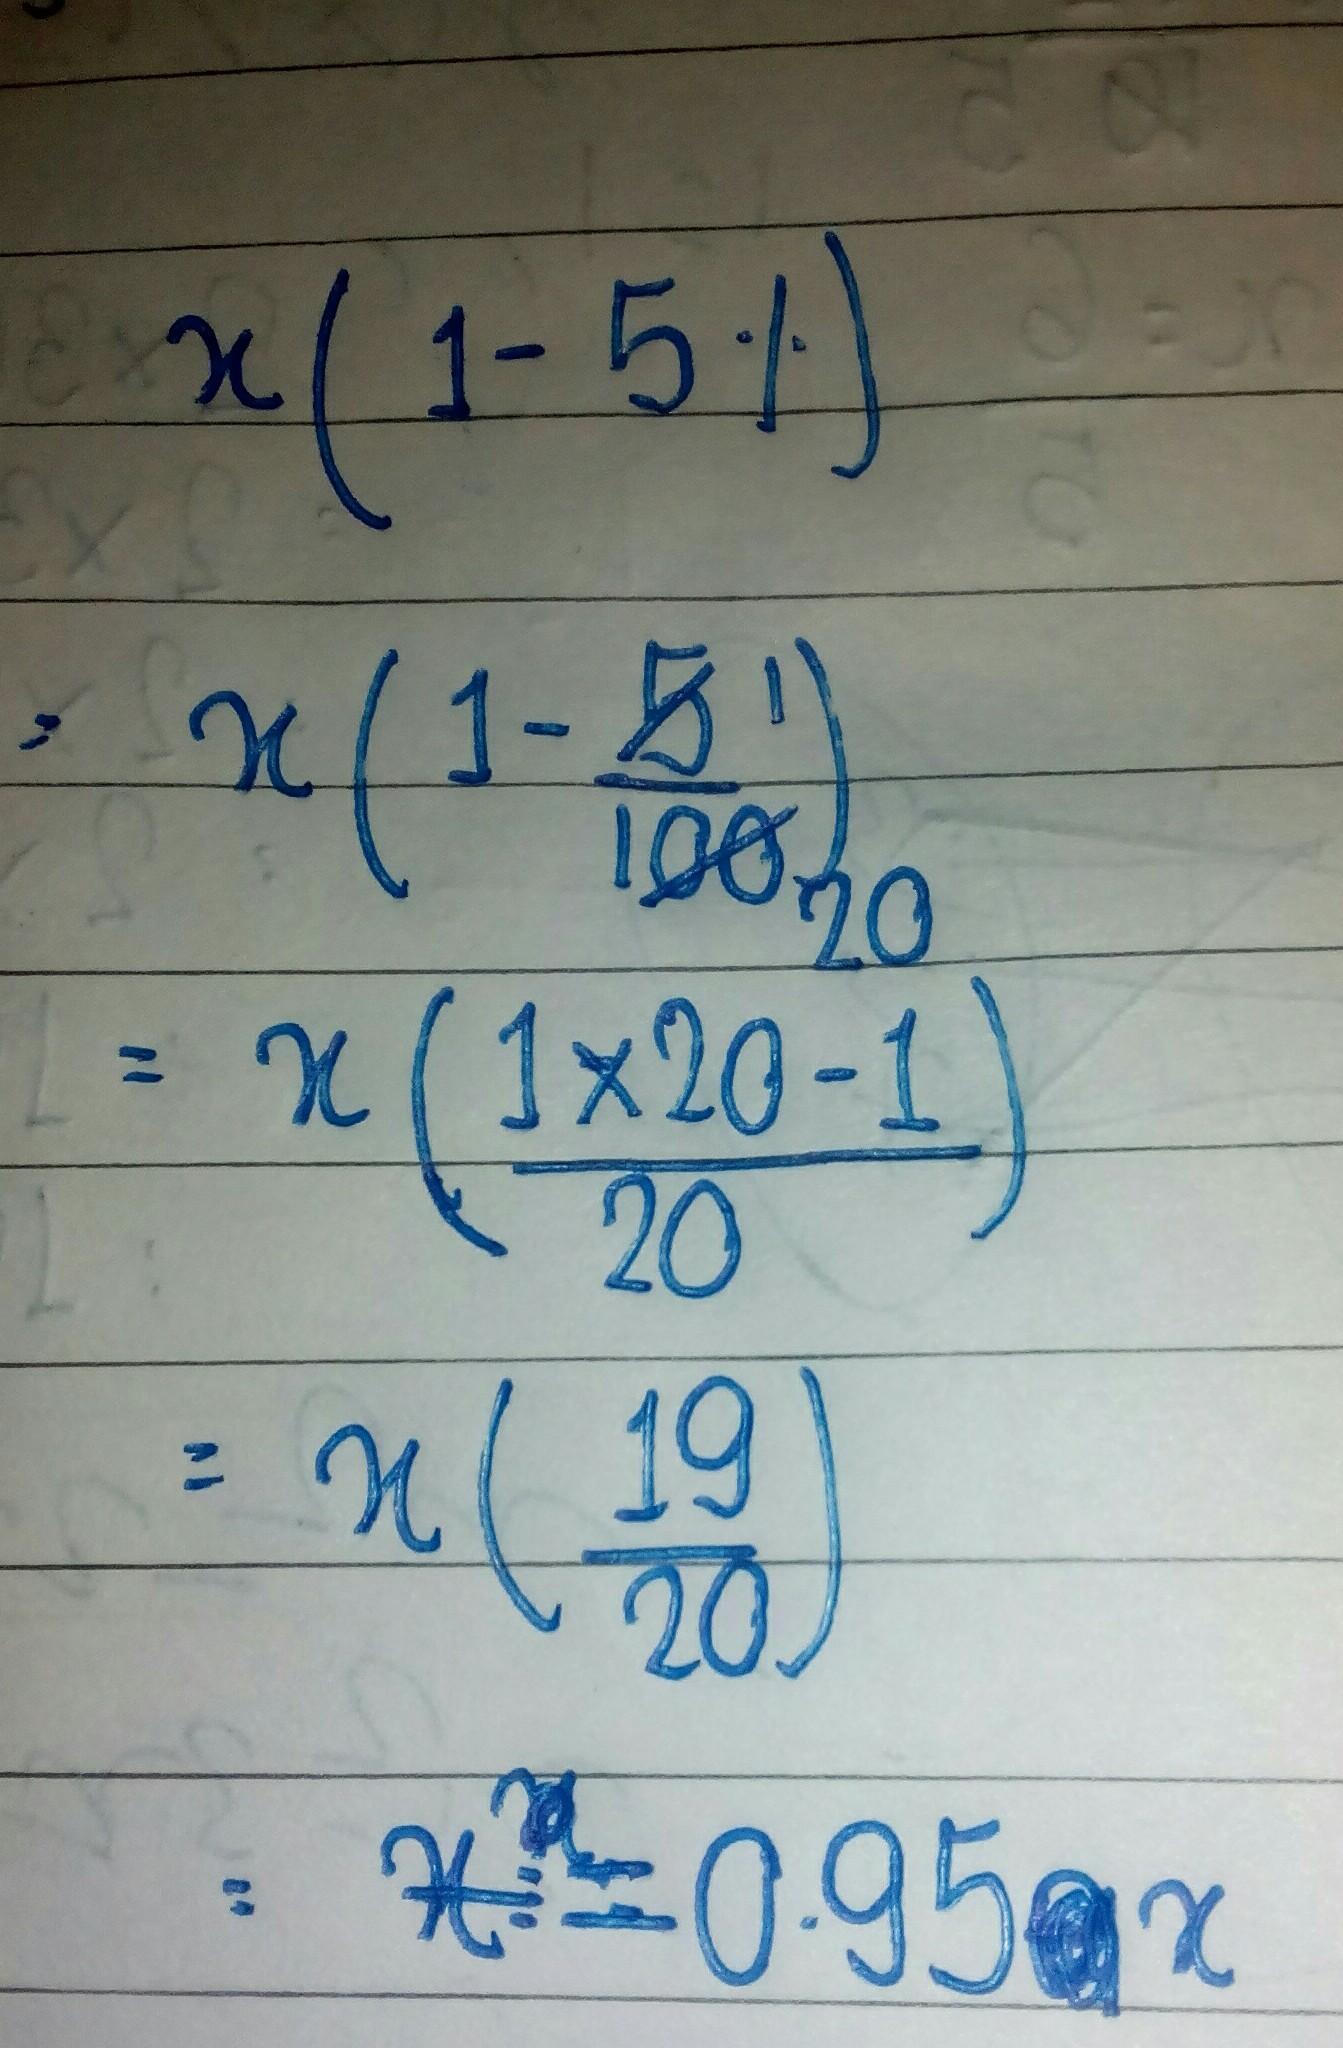 x(1-5%)
= x(1-5/100) 1 20
= x(1×20-1/20)
= x(19/20)
= = 0.95 x